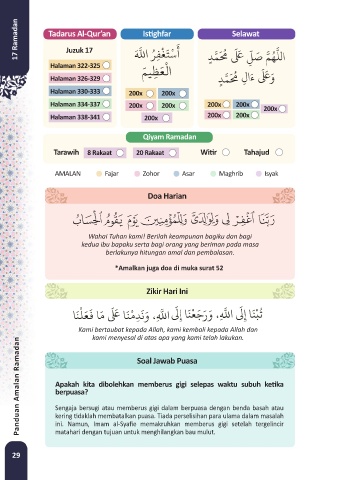 17 Ramadan
Tadarus Al-Qur'an
Istighfar
Selawat
Juzuk 17
Halaman 322-325
Halaman 326-329
Halaman 330-333
Halaman 334-337
Halaman 338-341
أَسْتَغْفِرُ اللَّهَ
الْعَظِيمَ
200x 200x
200x 200x
200x
اللَّهُمَّ صَلِّ عَلَىٰ مُحَمَّدٍ
وَعَلَىٰ آلِ مُحَمَّدٍ
200x 200x
200x
200x 200x
Qiyam Ramadan
Tarawih 8 Rakaat 20 Rakaat Witir Tahajud
AMALAN Fajar Zohor Asar Maghrib Isyak
Doa Harian
رَبَّنَا اغْفِرْ لِي وَلِوَالِدَيَّ وَلِلْمُؤْمِنِينَ يَوْمَ يَقُومُ الْحِسَابُ
Wahai Tuhan kami! Berilah keampunan bagiku dan bagi
kedua ibu bapaku serta bagi orang yang beriman pada masa
berlakunya hitungan amal dan pembalasan.
*Amalkan juga doa di muka surat 52
Zikir Hari Ini
تُبْنَا إِلَى اللَّهِ، وَرَجَعْنَا إِلَى اللَّهِ، وَنَدِمْنَا عَلَىٰ مَا فَعَلْنَا
Kami bertaubat kepada Allah, kami kembali kepada Allah dan
kami menyesal di atas apa yang kami telah lakukan.
Soal Jawab Puasa
Apakah kita dibolehkan memberus gigi selepas waktu subuh ketika
berpuasa?
Sengaja bersugi atau memberus gigi dalam berpuasa dengan benda basah atau
kering tidaklah membatalkan puasa. Tiada perselisihan para ulama dalam masalah
ini. Namun, Imam al-Syafie memakruhkan memberus gigi setelah tergelincir
matahari dengan tujuan untuk menghilangkan bau mulut.
Panduan Amalan Ramadan
29